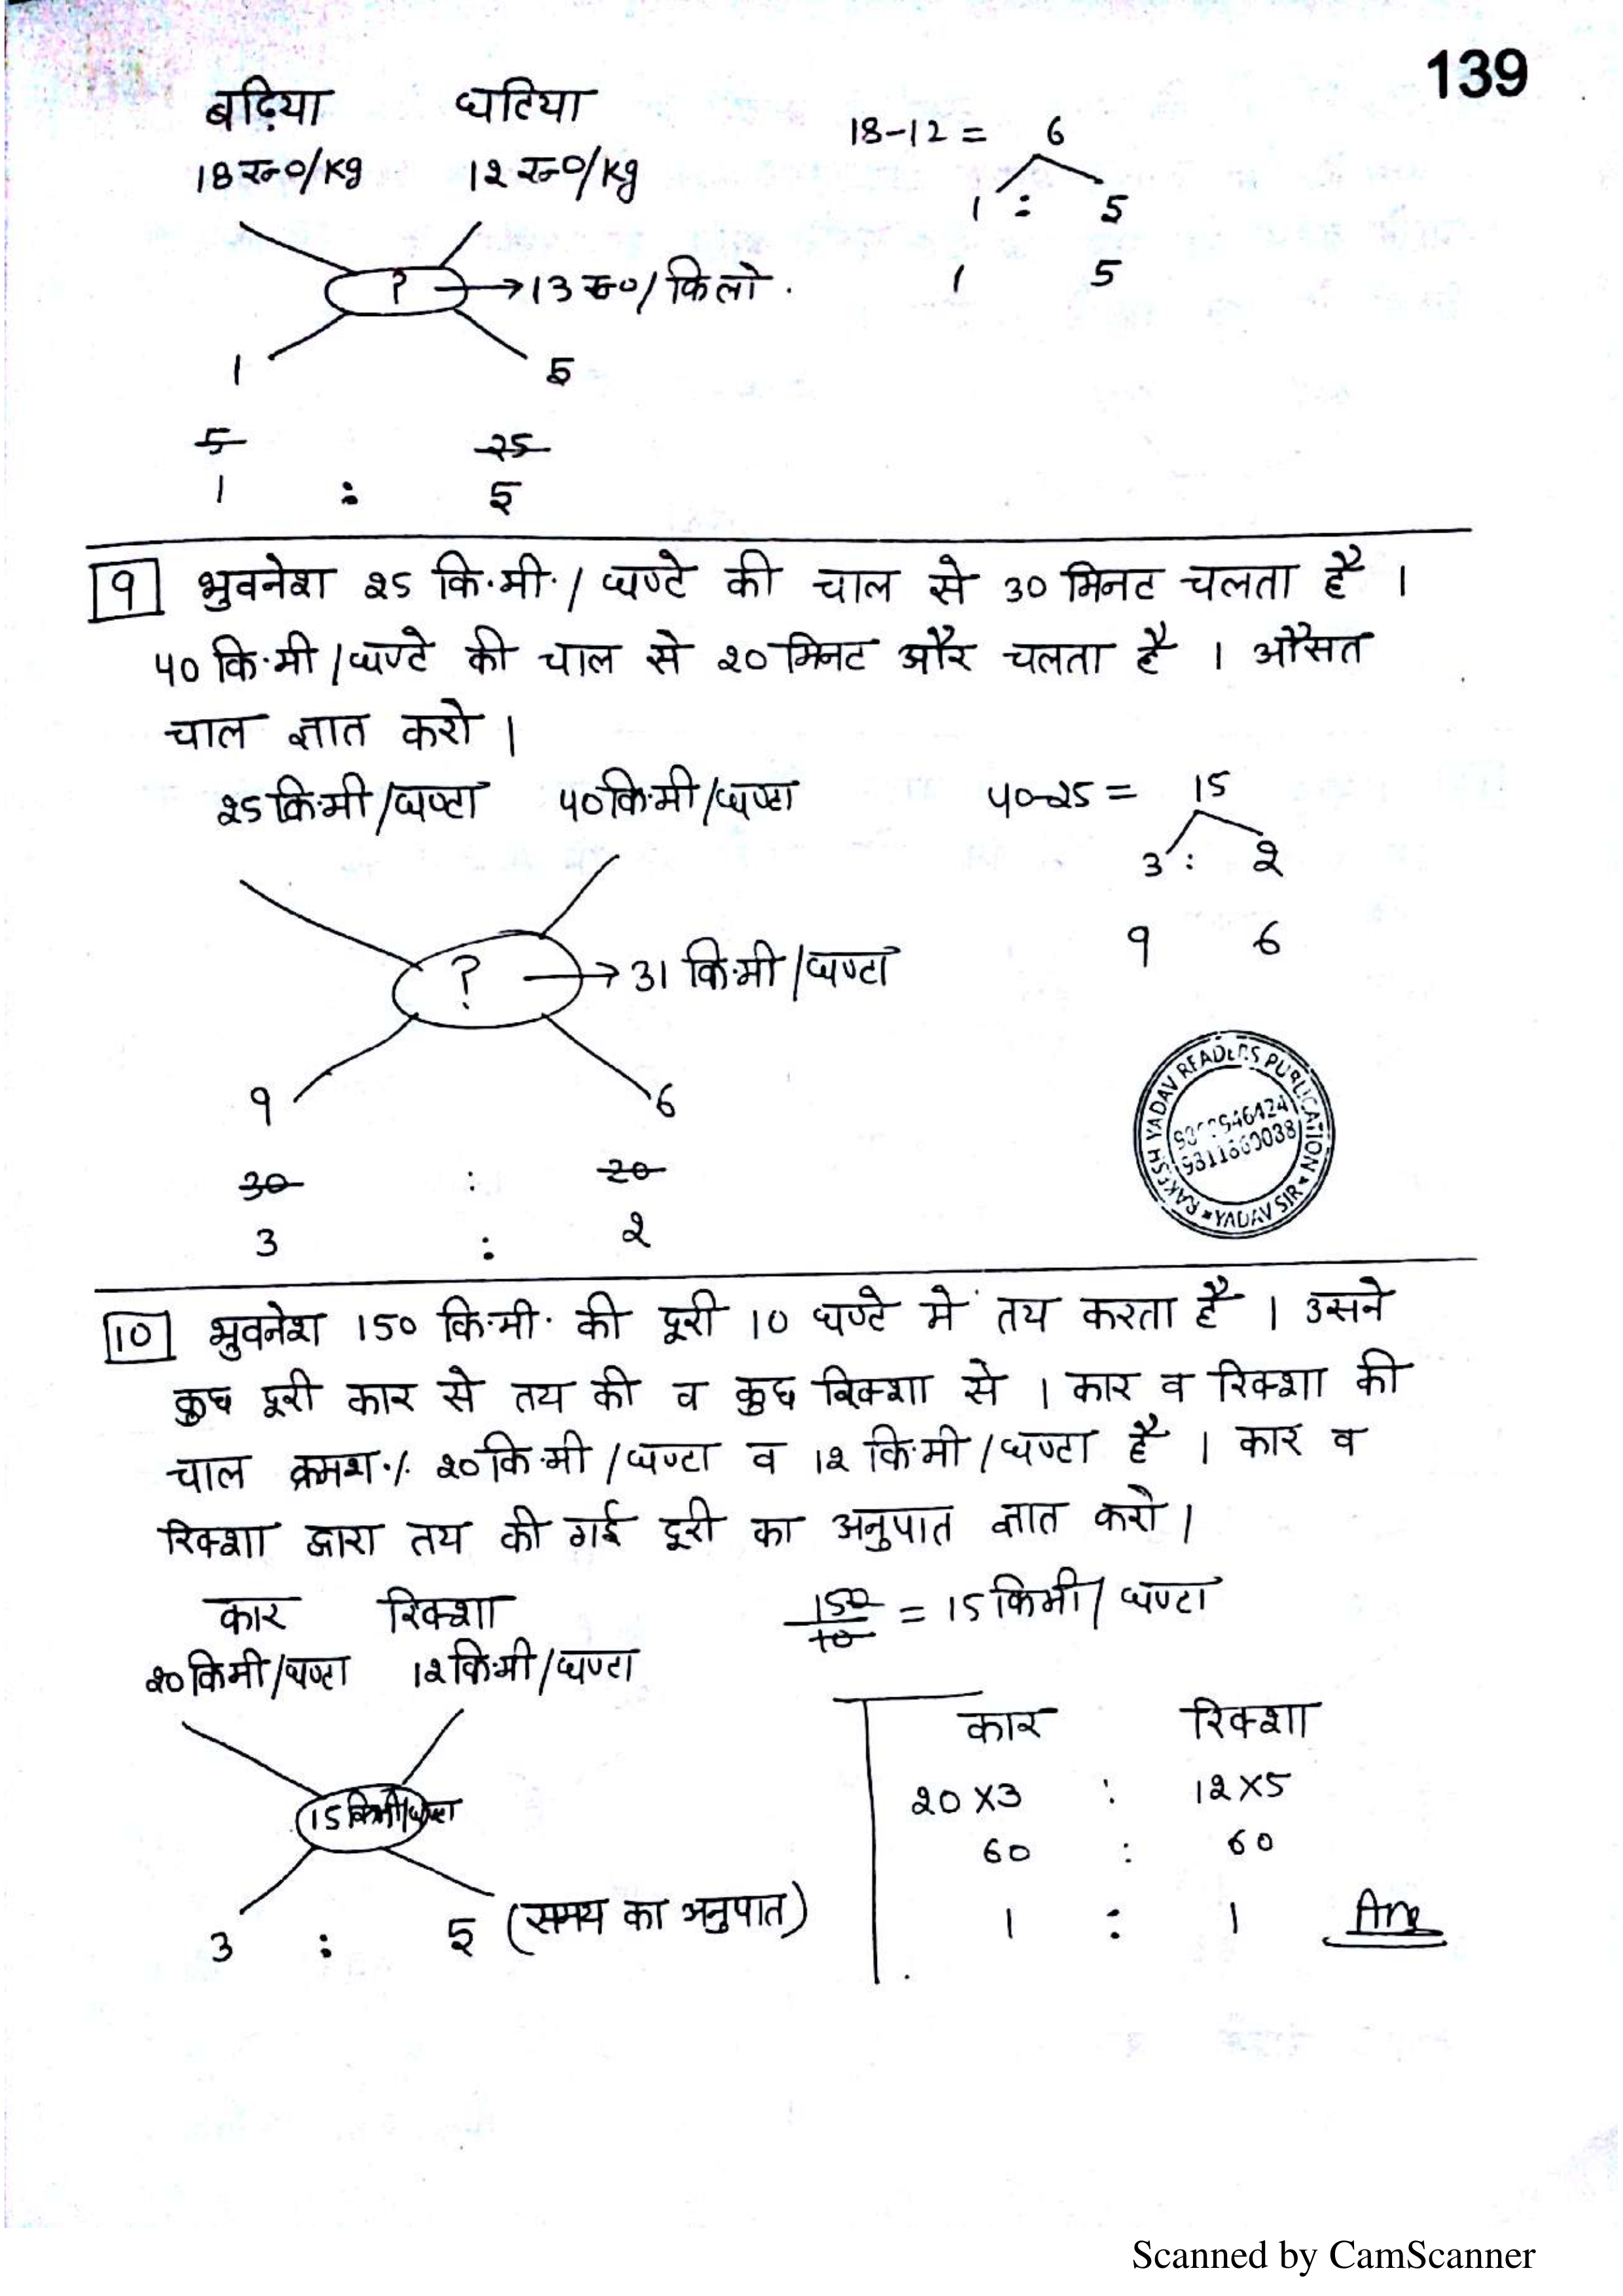 139
बढ़िया घटिया
18 रु०/kg 12 रु०/kg
18-12 = 6
1 : 5
1 5
? → 13 रु०/किलो .
1 5
5 25
1 : 5
9 भुवनेश 25 कि.मी./घण्टे की चाल से 30 मिनट चलता है ।
40 कि.मी/घण्टे की चाल से 20 मिनट और चलता है । औसत
चाल ज्ञात करो ।
25 कि.मी/घण्टा 40 कि.मी/घण्टा
40-25 = 15
3 : 2
9 6
? → 31 कि.मी/घण्टा
9 6
30 : 20
3 : 2
RAKESH YADAV READERS PUBLICATION
YADAV SIR
10 भुवनेश 150 कि.मी. की दूरी 10 घण्टे में तय करता है । उसने
कुछ दूरी कार से तय की व कुछ रिक्शा से । कार व रिक्शा की
चाल क्रमश: 20 कि.मी/घण्टा व 12 कि.मी/घण्टा है । कार व
रिक्शा द्वारा तय की गई दूरी का अनुपात ज्ञात करो ।
कार रिक्शा
20 किमी/घण्टा 12 कि.मी/घण्टा
150/10 = 15 किमी/घण्टा
15 किमी/घण्टा
3 : 5 (समय का अनुपात)
कार : रिक्शा
20×3 : 12×5
60 : 60
1 : 1 Ans
Scanned by CamScanner